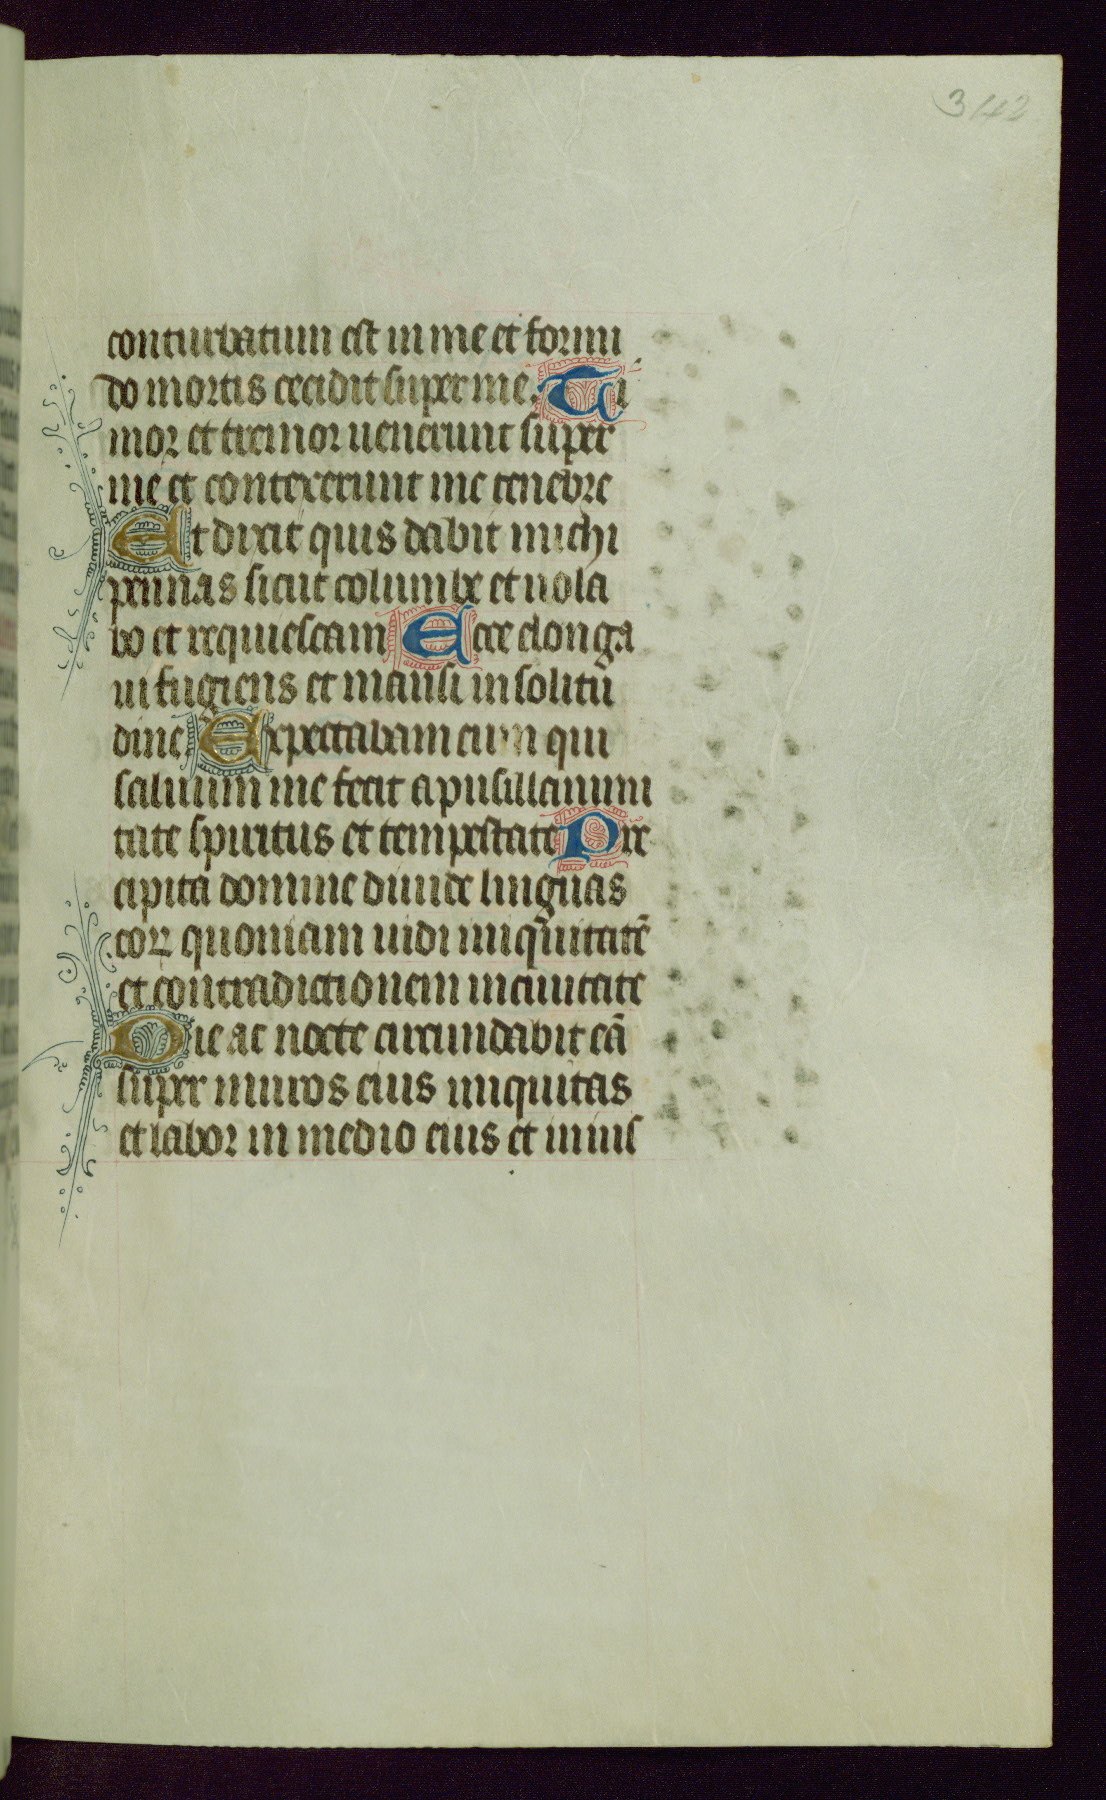 342
conturbatum est in me et formi
do mortis cecidit super me. Ti
mor et tremor uenerunt super
me et contexerunt me tenebre
Et dixit quis dabit michi
pennas sicut columbe et uola
bo et requiescam Ecce elonga
ui fugiens et mansi in solitu᷒
dine Expectabam eum qui
saluum me fecit a pusillanimi
tate spiritus et tempestate Pre
cipita domine diuide linguas
eoꝝ quoniam uidi iniquitatē
et contradictionem in ciuitate
Die ac nocte circundabit eā
super muros eius iniquitas
et labor in medio eius et inius